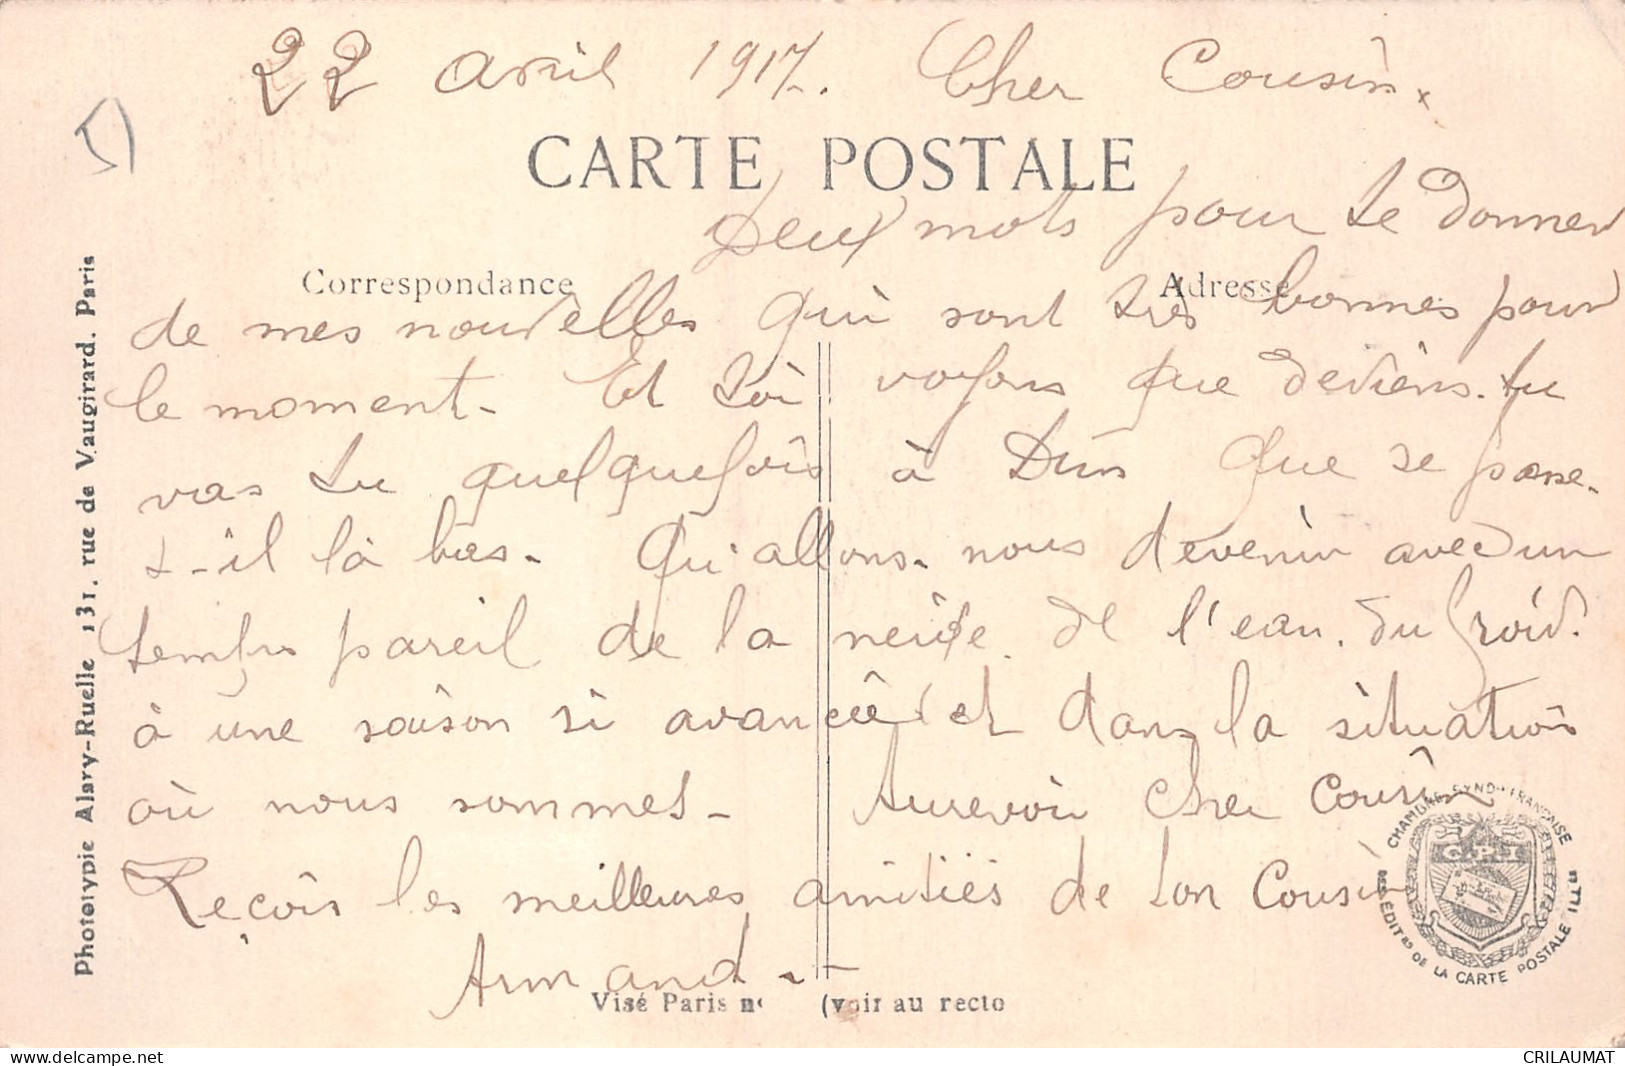 22 avril 1917. Cher Cousin.
CARTE POSTALE
Deux mots pour te donner
Correspondance
Adresse
de mes nouvelles qui sont très bonnes pour
le moment. Et toi voyons que deviens-tu
vas tu quelquefois à Dun Que se passe-
t-il là bas. Qu'allons-nous devenir avec un
temps pareil de la neige de l'eau, du froid.
à une saison si avancée et dans la situation
où nous sommes. Aurevoir cher Cousin
Reçois les meilleures amitiés de ton Cousin
Armand
Visé Paris n° (voir au recto
Phototypie Alary-Ruelle 131, rue de Vaugirard. Paris
CHAMBRE SYND. FRANÇAISE
C.P.I
DES ÉDITRS DE LA CARTE POSTALE ILLTE
CRILAUMAT